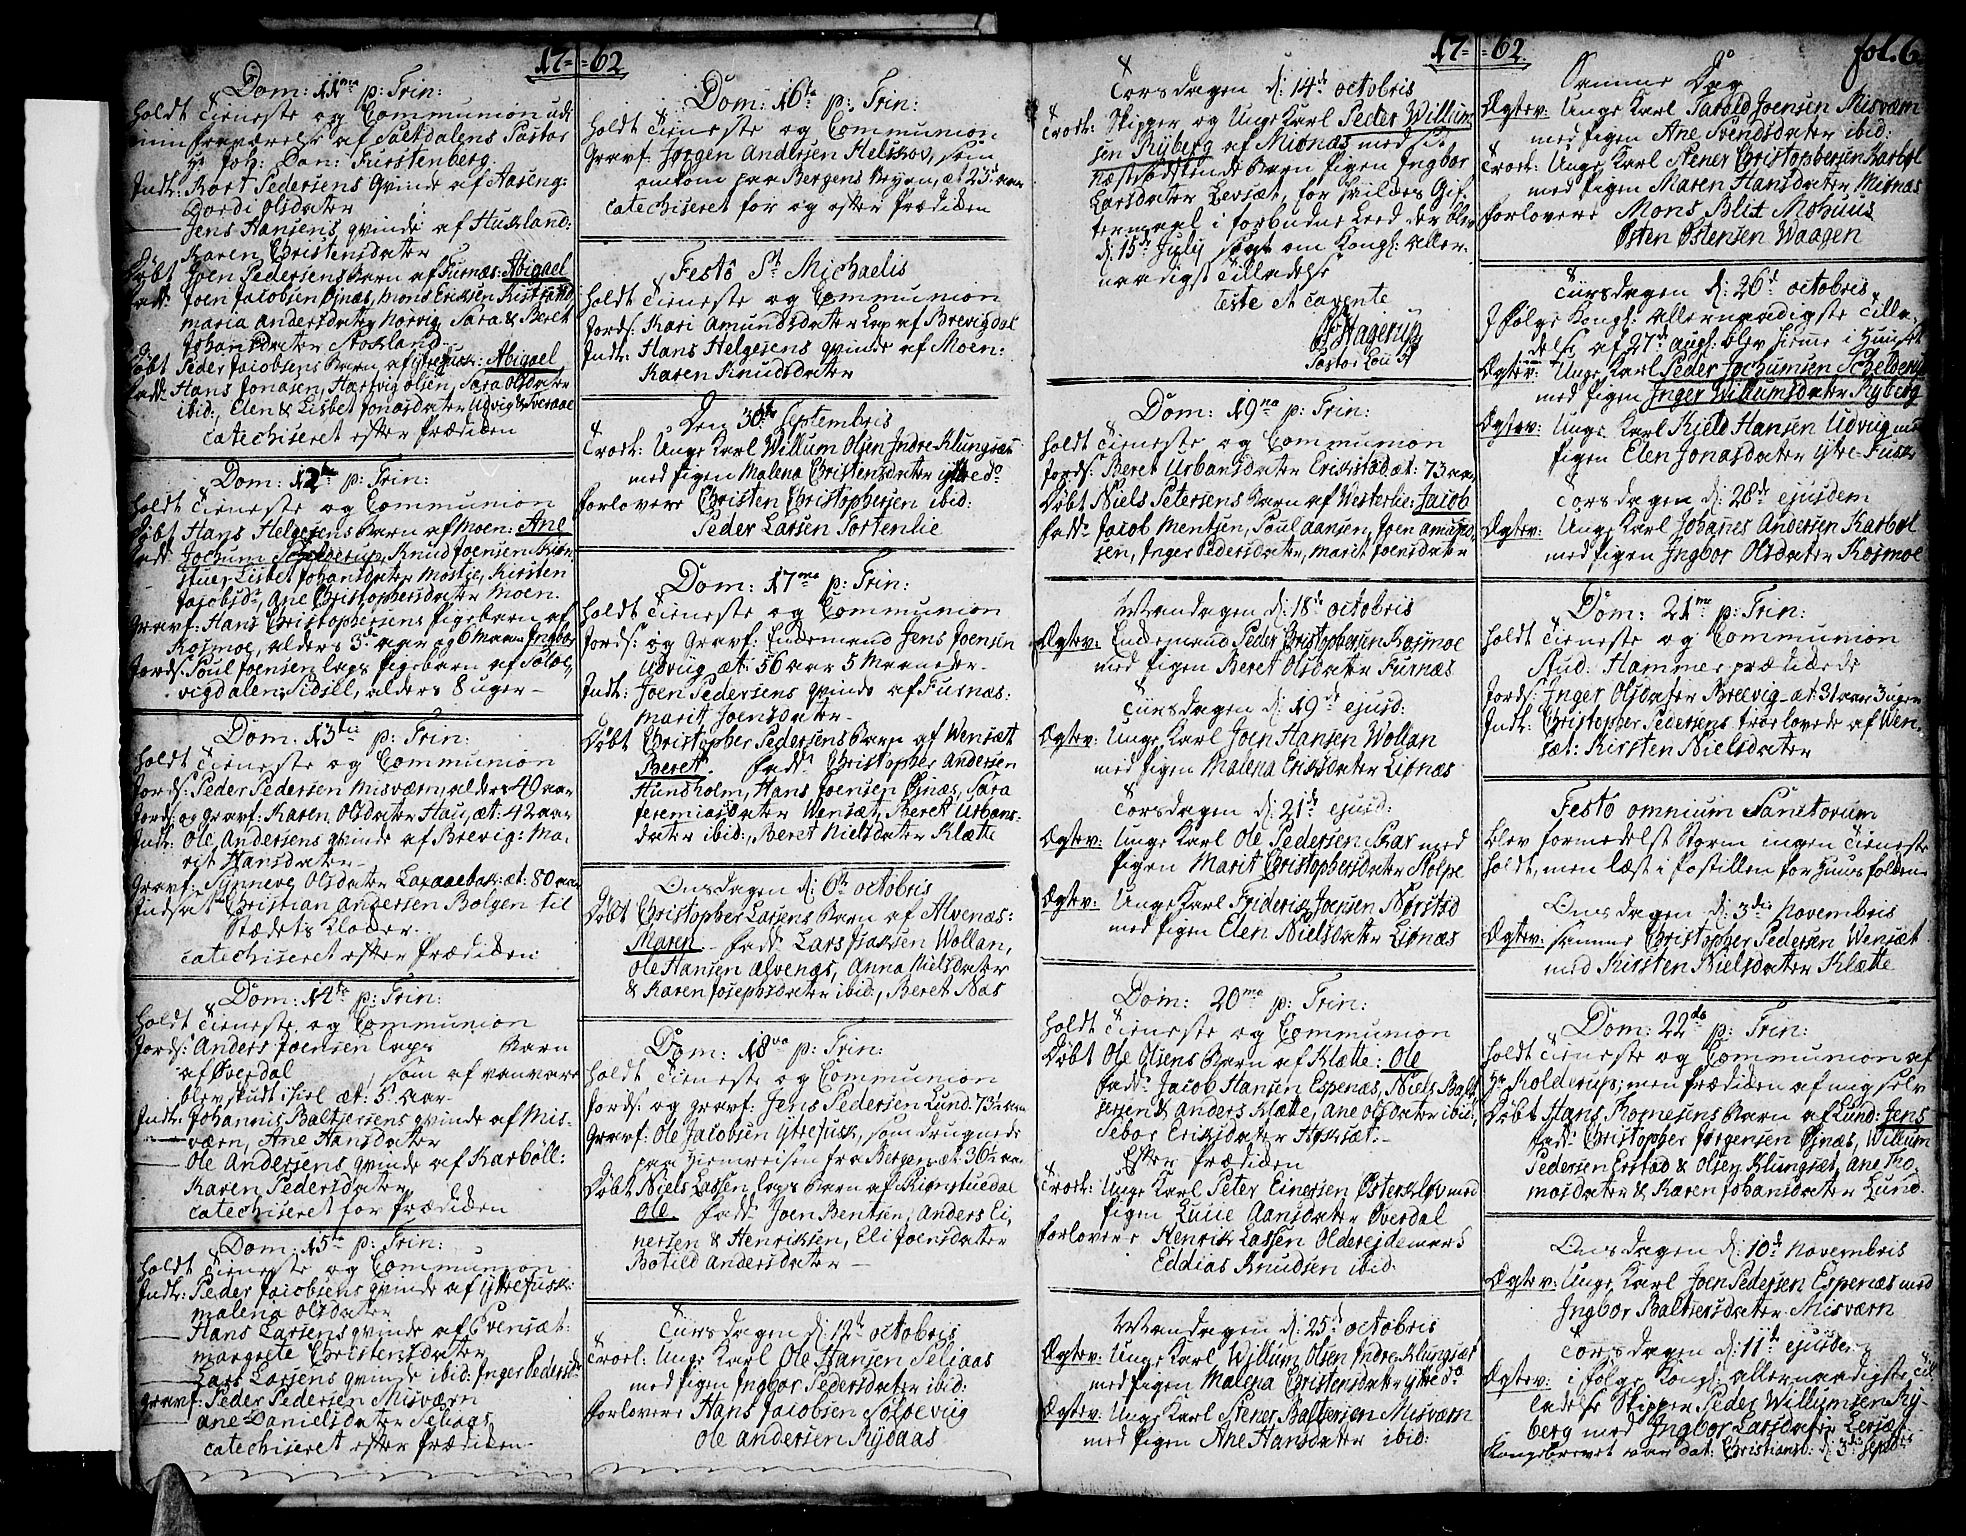 17=
=62
Dom: 11ma p: Trin:
holdt Tieneste og Communion udi
min fraværelse af Saltdalens Pastor
Hr Joh: Dan: Fürstenberg.
Indl: Kort Pedersens Qvinde af Aaseng:
Gordi Olsdater
— Jens Hansens qvinde af Huskland:
Karen Christensdater
Døbt Joen Pedersens Barn af Furnæs: Abigael
fadd: Joen Jacobsen Øjnæs, Mons Eriksen
maria andersdater Norvig, Sara & Beret
Johansdater Stokland.
Døbt Peder Jacobsens Barn af Ytrefusk: Abigael
fadd: Hans Jonasen, Hartvig Olsen, Sara Olsdater
ibid:, Elen & Lisbed Jonasdater Udvig & Sveraae
catechiseret efter Prædiken
Dom: 12te p: Trin:
holdt Tieneste og Communion
Døbt Hans Helgesens Barn af Moen: Ane
fadd: Jochum Schelderup, Knud Joensen Kiern
stue, Lisbet Johansdater Mostie, Kirsten
Jacobsdr, Ane Christophersdater Moen.
Gravf: Hans Christophersens pigebarn af
Kosmoe, alders 3de aar og 6 Maan: Ingbor
Jords: Poul Joensen laps pigebarn af Soløe,
vigdalen: Sidsel, alders 8 uger —
Dom: 13tii p: Trin:
holdt Tieneste og Communion
Jords: Peder Pedersen Misværn, alders 40 aar
Jords: og gravf: Karen Olsdater Hau, æt: 42 aar
Indl: Ole Andersens qvinde af Brevig: Ma,
rit Hansdater —
Gravf: Synneve Olsdater Laxaaebak: æt: 80 aar
Indsat Christian Andersen Bolgen til
Stædets Klocker
catechiseret efter Prædiken:
Dom: 14te p: Trin:
holdt Tieneste og Communion
Jords: Anders Joensen laps Barn
af Øverdal, som af vanvare
blev skudt ihiel æt: 5 Aar
Indl: Johannis Baltzersens qvinde af Mis-
værn, Ane Hansdater
— Ole Andersens qvinde af Karbøll:
Karen Pedersdater
catechiseret for Prædiken
Dom: 15ta p: Trin:
holdt Tieneste og Communion
Indl: Peder Jacobsens qvinde af Ytrefusk:
malena Olsdater
— Hans Larsens qvinde af Evensæt:
margrete Christensdater
— Lars Larsens qvinde ibid: Inger Pedersdr
gravf: Peder Pedersen Misværn
— ane Danielsdater Seliaas
catechiseret efter Prædiken
Dom: 16ta p: Trin:
holdt Tieneste og Communion
Gravf: Jørgen Andersen Helskov, som
omkom paa Bergens Reysen, æt 23 aar
catechiseret for og efter Prædiken
Festô St Michaelis
holdt Tieneste og Communion
Jords: Kari Amundsdater Lap af Brevigdal
Indl: Hans Helgesens qvinde af Moen:
Karen Knudsdater
Den 30te Septembris
Trorl: Unge Karl Willum Olsen Indre Klungsæt
med pigen Malena Christensdater ytre do
forlovere Christen Christophersen ibid:
Peder Larsen Tortenlie
Dom: 17ma p: Trin:
holdt Tieneste og Communion
Jords: og Gravf: Enckemand Jens Joensen
Udvig æt: 56 aar 5 Maaneder
Indl: Joen Pedersens qvinde af Furnæs:
Marit Joensdater
Døbt Christopher Pedersens Barn af Wensæt
Beret. fadd: Christopher Andersen
Hunsholm, Hans Joensen Øjnæs, Sara
Jeremiasdater Wensæt, Beret Urbans-
dater ibid:, Beret Nielsdater Klætte
Onsdagen d: 6te octobris
Døbt Christopher Larsens Barn af Alvenæs:
Maren fadd: Lars Isaksen Wollan,
Ole Hansen alvenæs, Anna Nielsdater
& Karen Josephsdater ibid:, Beret Næs
Dom: 18va p: Trin:
holdt Tieneste og Communion
Jords: og gravf: Jens Pedersen Lund: 73 aar
Gravf: Ole Jacobsen Ytrefusk, som druknede
paa Hiemreisen fra Bergen æt 36 aar
Døbt Niels Lassen laps Barn af Kiernstuedal
Ole fadd: Joen Bentsen, Anders Ei,
nersen & Henriksen, Eli Joensdater
Botild Andersdater —
Tiirsdagen d: 12te octobris
Trorl: Unge Karl Ole Hansen Seliaas
med pigen Ingbor Pedersdater ibid:
forlovere Hans Jacobsen Soløevig
Ole Andersen Rydaas
17=
=62.
fol. 6
Torsdagen d: 14de octobris
Trorl: Skipper og Unge Karl Peder Willum
sen Ryberg af Miønæs med sit
næstsødskende Barn Pigen Ingbor
Larsdater Levsæt, for hvildes Gif,
termaal i forbudne Leed der blev
d: 15de July søgt om Kongl: aller-
naadigst Tilladelse
Teste et cavente
Hagerup
Pastor Loci
Dom: 19na p: Trin:
holdt Tieneste og Communion
Jords: Beret Urbansdater Erikstad æt: 73 aar
Døbt Niels Petersens Barn af Westerlie: Jacob
fadd: Jacob Mentsen, Poul aansen, Joen amund-
sen, Inger Pedersdater, Marit Joensdater
Mandagen d: 18de octobris
Ægtev: Enckemand Peder Christophersen Kosmoe
med pigen Beret Olsdater Furnæs
Tiirsdagen d: 19de ejusd:
Ægtev: Unge Karl Joen Hansen Wollan
med pigen Malena Eriksdater Liønæs
Torsdagen d: 21de ejusd:
Ægtev: Unge Karl Ole Pedersen Skar med
pigen Marit Christophersdater Stolpe
Ægtev: Unge Karl Friderik Joensen Nørstad
med pigen Elen Nielsdater Liønæs
Dom: 20ma p: Trin:
holdt Tieneste og Communion
Døbt Ole Olsens Barn af Klætte: Ole
fadd: Jacob Hansen Espenæs, Niels Balt,
sersen & Anders Klætte, Ane Olsdater ibid:,
Sebor Eriksdater Hoksæt.
Efter Prædiken
Trorl: Unge Karl Peter Einersen Østerkløv med
pigen Lucie Aansdater Øverdal
forlovere Henrik Lassen Oldereidemark
Eddias Knudsen ibid:
Mandagen d: 25de octobris
Ægtev: Unge Karl Willum Olsen Indre Klungsæt
med pigen Malena Christensdater ytre do
Ægtev: Unge Karl Stener Baltsersen Misværn
med pigen Ane Hansdater ibid:
Samme Dag
Ægtev: Unge Karl Harold Joensen Misværn
med pigen Ane Svendsdater ibid:
Trorl: Unge Karl Stener Christophersen Karbøl
med pigen Maren Hansdater Miønæs
forlovere Mons Blix Mohuus
Østen Østensen Waagen
Tiirsdagen d: 26de octobris
Ifølge Kongl: allernaadigste Tilla-
delse af 27de augl: blev hiemme i Huuset
Ægtev: Unge Karl Peder Jochumsen Schelderup
med pigen Inger Willumsdater Ryberg
Ægtev: Unge Karl Kield Hansen Udvug med
pigen Elen Jonasdater ytre Fusk
Torsdagen d: 28de ejusdem
Ægtev: Unge Karl Johanes Andersen Karbøl
med pigen Ingbor Olsdater Kosmoe
Dom: 21ma p: Trin:
holdt Tieneste og Communion
Stud: Hammer prædikede
Jords: Inger Olsdater Breevig æt: 31 aar 3 uger
Indl: Christopher Pedersens trorlovede af Wen,
sæt: Kirsten Nielsdater
Festo omnium Sanctorum
blev formedelst Storm ingen Tieneste
holdt, men læst i Postillen for Huusfolket
Onsdagen d: 3die Novembris
Ægtev: samme Christopher Pedersen Wensæt
med Kirsten Nielsdater Klætte
Dom: 22da p: Trin:
holdt Tieneste og Communion af
Hr Kolderup; men Prædiken af mig selv
Døbt Hans Thomesens Barn af Lund: Jens
fadd: Christopher Jørgensen Øjnæs, Willum
Pedersen Erstad & Olsen Klungsæt, Ane Tho,
masdater & Karen Johansdater Lund.
Onsdagen d: 10de Novembris
Ægtev: Unge Karl Joen Pedersen Espenæs med
Ingbor Baltsersdater Misværn
Torsdagen d: 11te ejusdem
Ægtev: ifølge Kongl: allernaadigste Til
ladelse Skipper Peder Willumsen Ry-
berg med Ingbor Larsdater Levsæt
Kongebrevet var dat: Christiansb: d: 3die Septbr